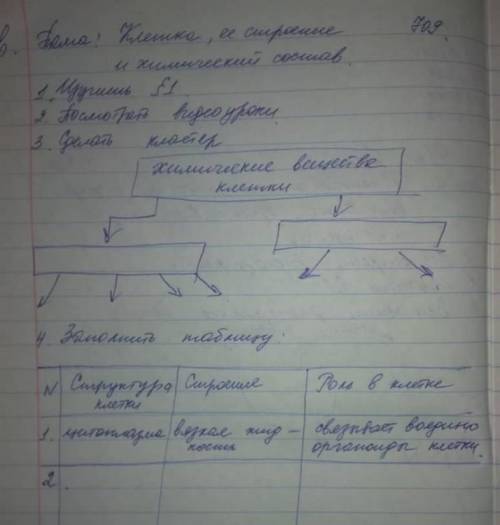 Тема: Клетка, ее строение
и химический состав.
1. Изучить §1
2. Посмотреть видеоуроки
3. Сделать кластер
химические вещества
клетки
4. Заполнить таблицу.
N Структура клетки Строение Роль в клетке
1. цитоплазма вязкая жид-кость связывает воедино органоиды клетки.
2.